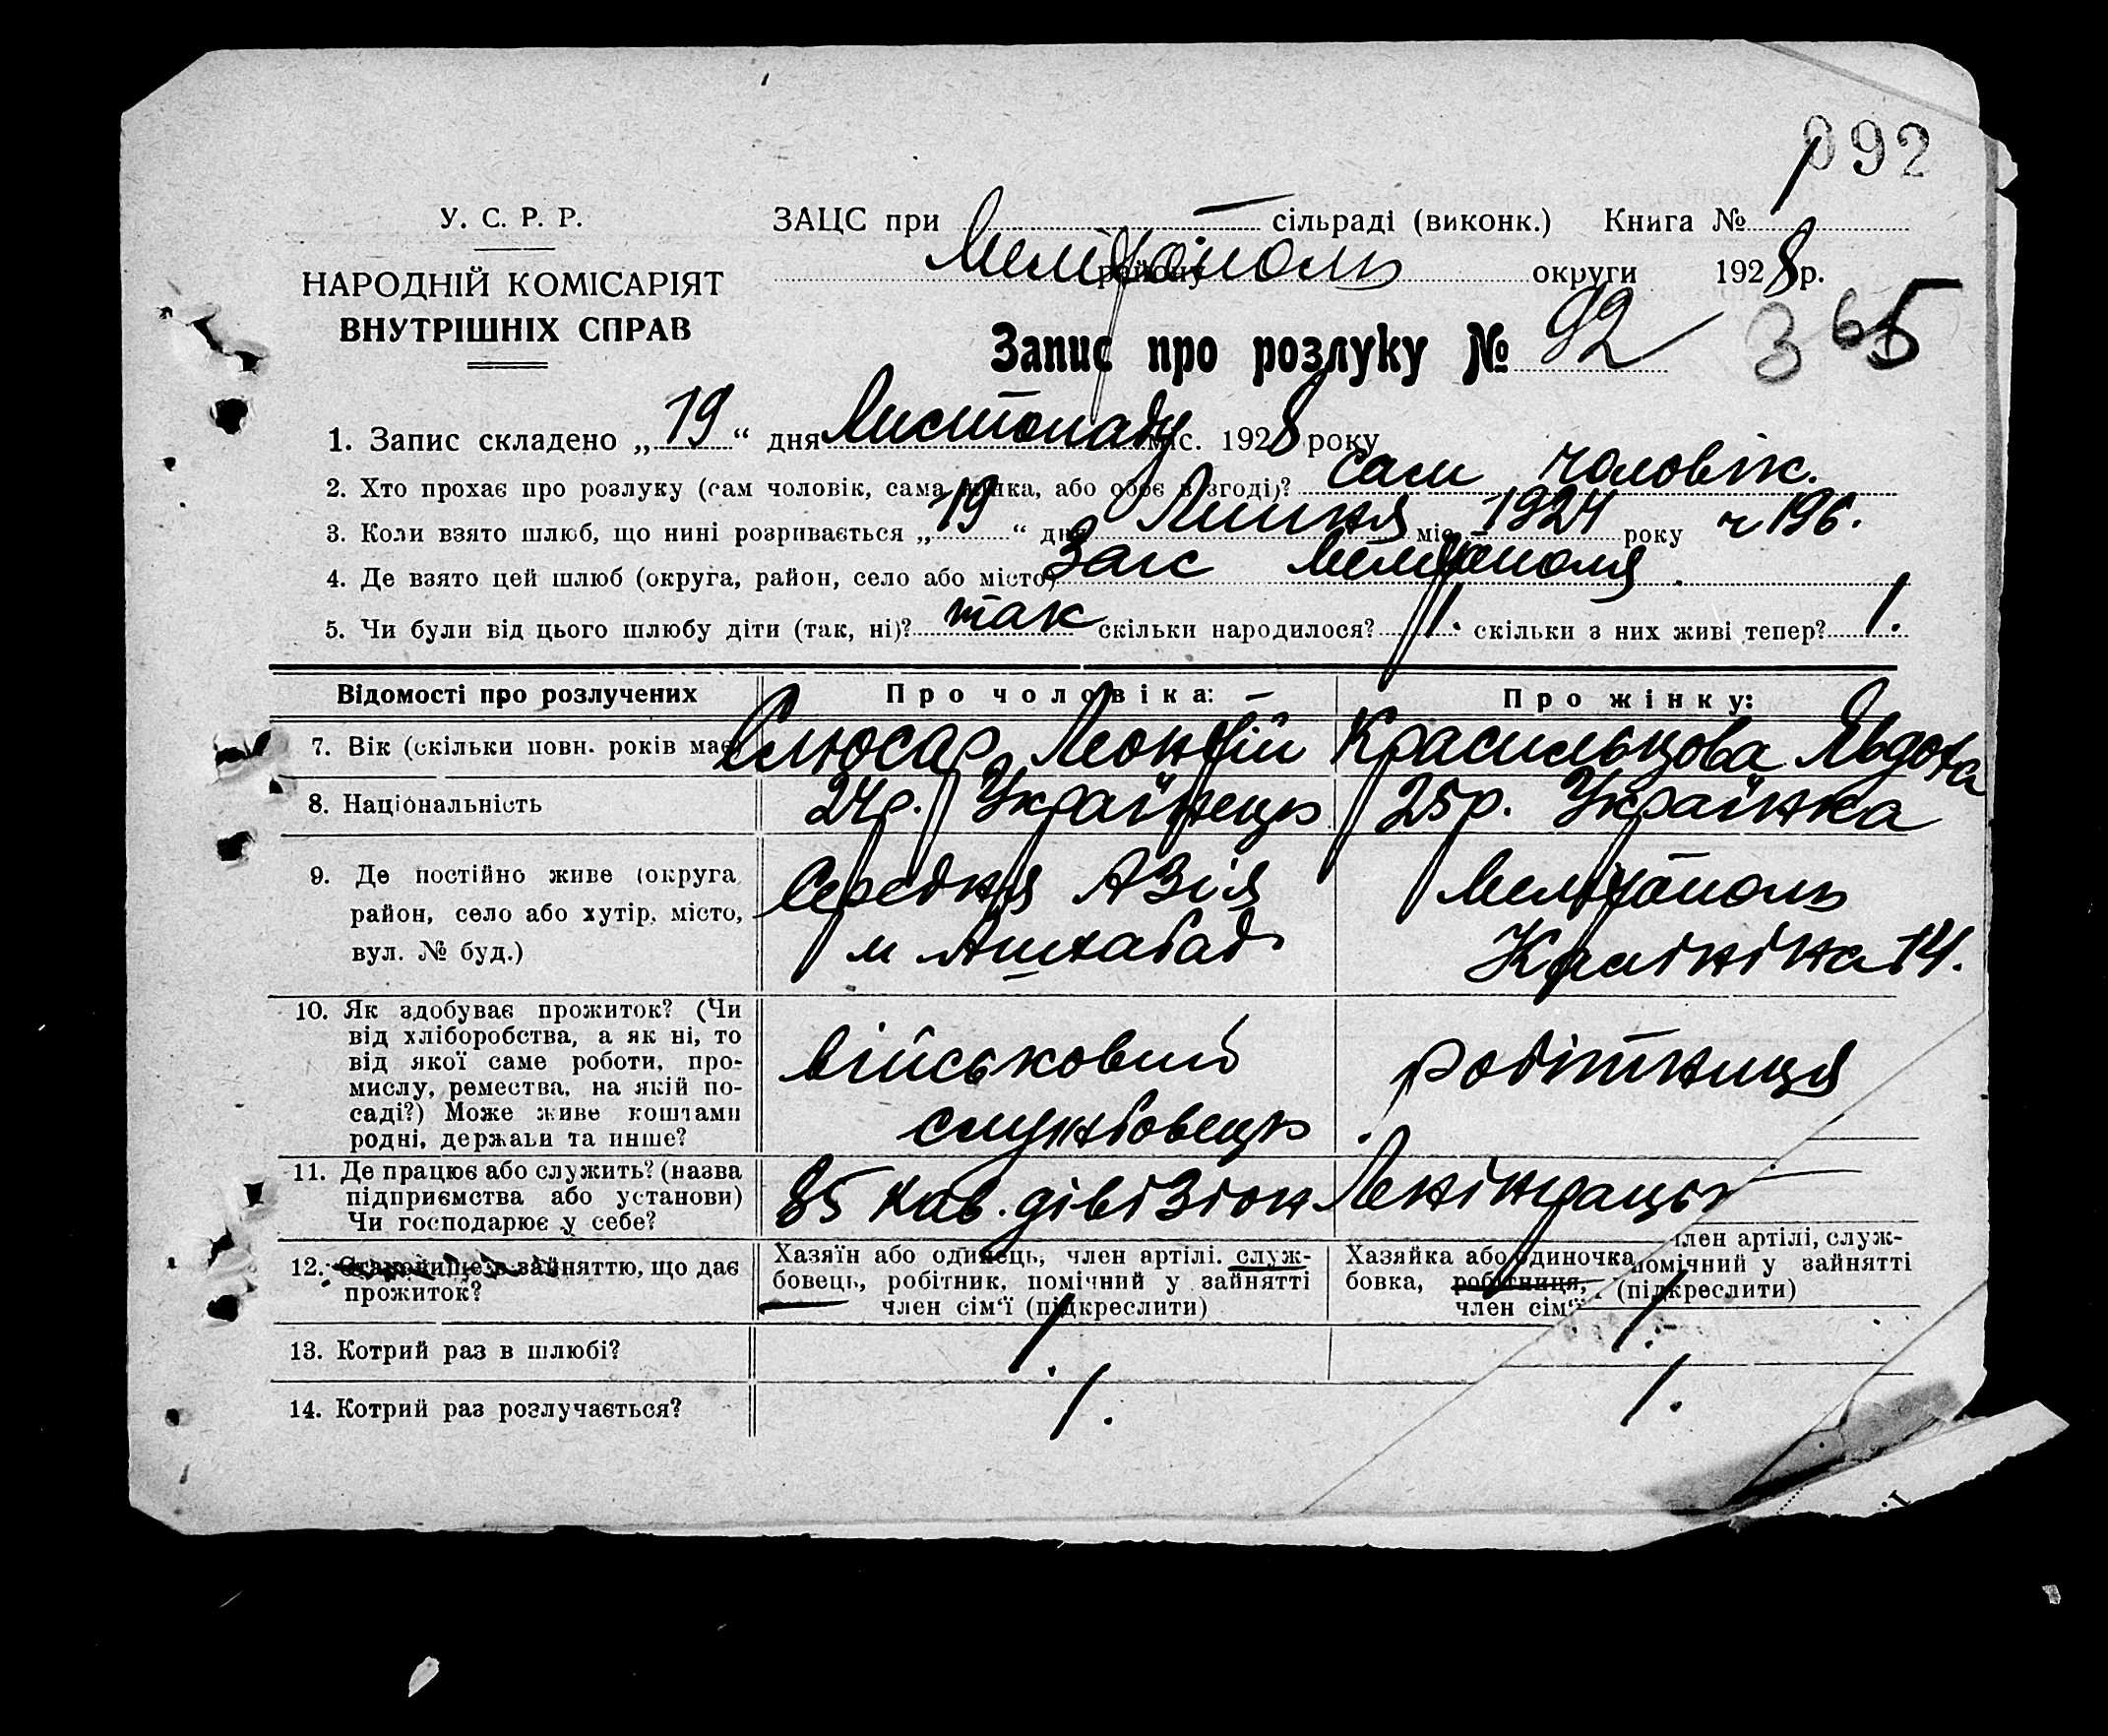 092
У. С. Р. Р.
НАРОДНІЙ КОМІСАРІЯТ
ВНУТРІШНІХ СПРАВ
ЗАЦС при сільраді (виконк.) Книга № 1
Мелітополь району округи 1928 р.
Запис про розлуку № 92
365
1. Запис складено „19“ дня Листопаду міс. 1928 року
2. Хто прохає про розлуку (сам чоловік, сама жінка, або обоє в згоді)? сам чоловік.
3. Коли взято шлюб, що нині розривається „19“ дня Липня міс. 1924 року ч 196.
4. Де взято цей шлюб (округа, район, село або місто) Загс Мелітополя.
5. Чи були від цього шлюбу діти (так, ні)? так скільки народилося? 1. скільки з них живі тепер? 1.
Відомості про розлучених
Про чоловіка:
Про жінку:
7. Вік (скільки повн. років має)
Слюсар Леонтій
Красильцова Явдоха
8. Національність
24 р. Українець
25 р. Українка
9. Де постійно живе (округа, район, село або хутір, місто, вул. № буд.)
Середня Азія
м Ашхабад
Мелітополь
14.
10. Як здобуває прожиток? (Чи
від хліборобства, а як ні, то
від якої саме роботи, про-
мислу, ремества, на якій по-
саді?) Може живе коштами
родні, держави та инше?
військовий
службовець
робітниця
11. Де працює або служить? (назва
підприємства або установи)
Чи господарює у себе?
85 кав. дівізіон
12. Становище в зайняттю, що дає
прожиток?
Хазяїн або одинець, член артілі, служ-
бовець, робітник, помічний у зайнятті
член сім'ї (підкреслити)
Хазяйка або одиночка, член артілі, служ-
бовка, робітниця, помічний у зайнятті
член сім'ї (підкреслити)
13. Котрий раз в шлюбі?
1.
1.
14. Котрий раз розлучається?
1.
1.